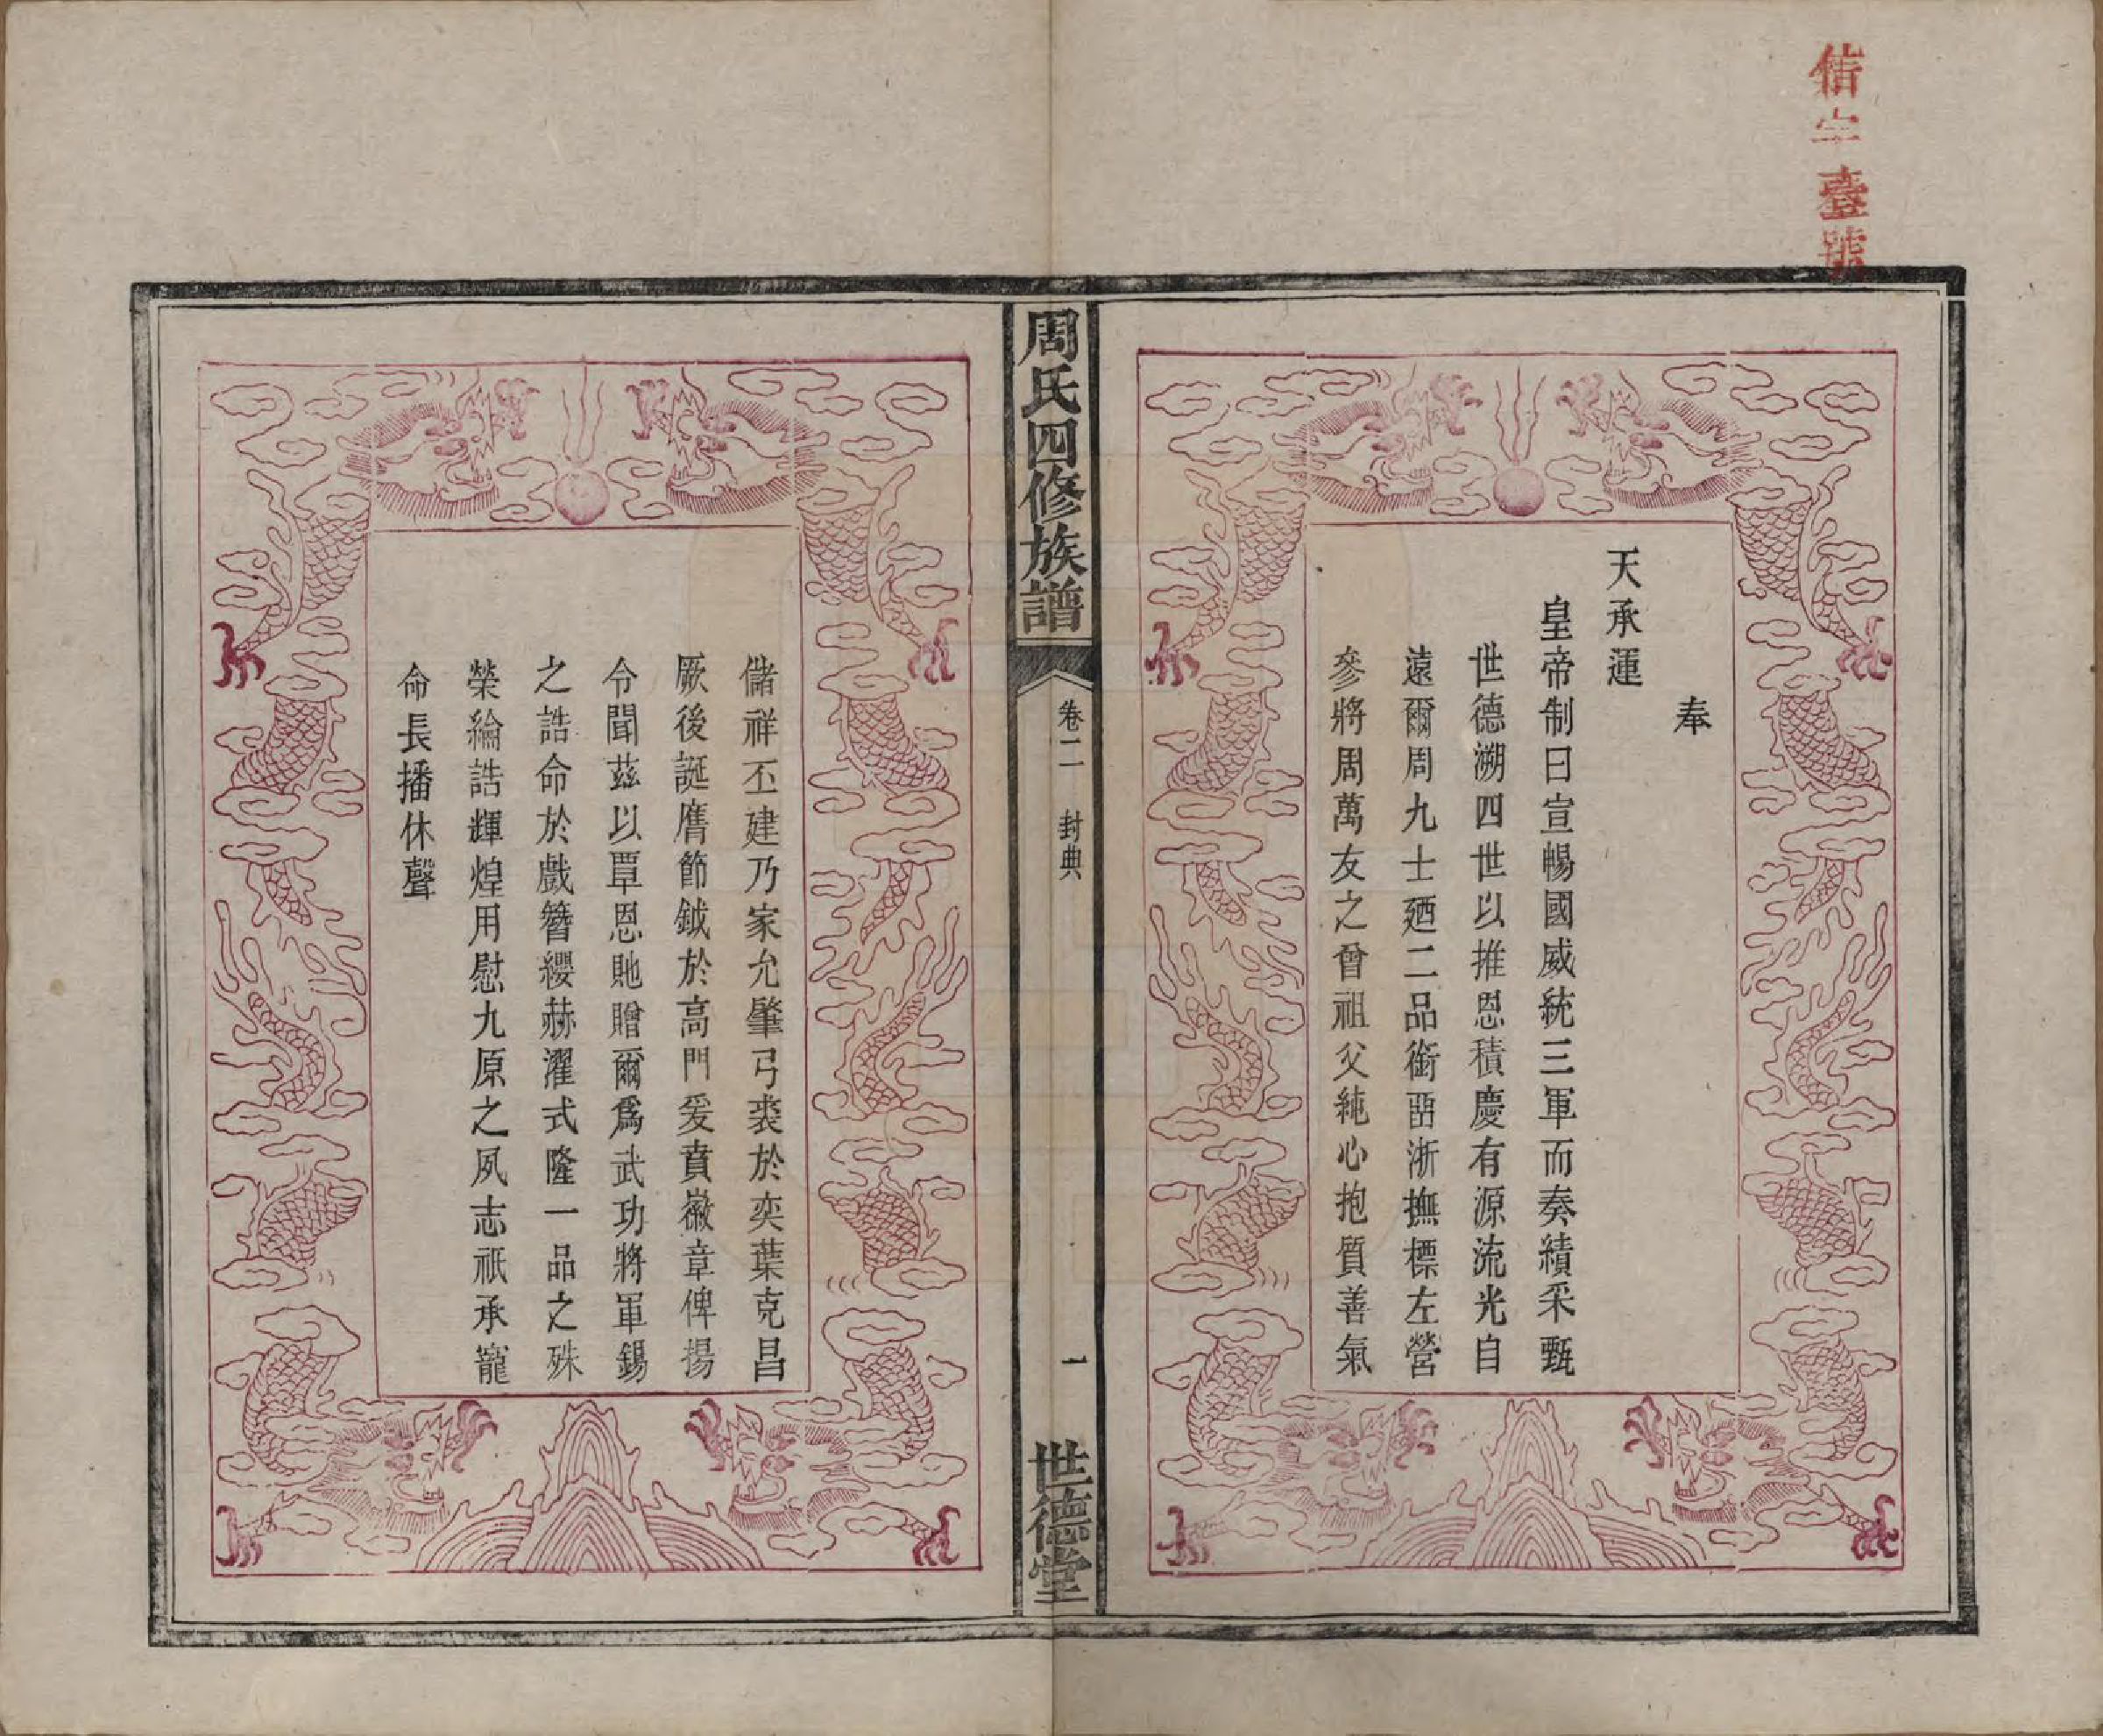 信字臺號
奉
天承運
皇帝制曰宣暢國威統三軍而奏績采甄
世德溯四世以推恩積慶有源流光自
遠爾周九士廼二品銜畱浙撫標左營
參將周萬友之曾祖父純心抱質善氣
周氏四修族譜
卷二　封典
一
世德堂
儲祥丕建乃家允肇弓裘於奕葉克昌
厥後誕膺節鉞於高門爰賁徽章俾揚
令聞茲以覃恩貤贈爾爲武功將軍錫
之誥命於戲簪纓赫濯式隆一品之殊
榮綸誥輝煌用慰九原之夙志祇承寵
命長播休聲